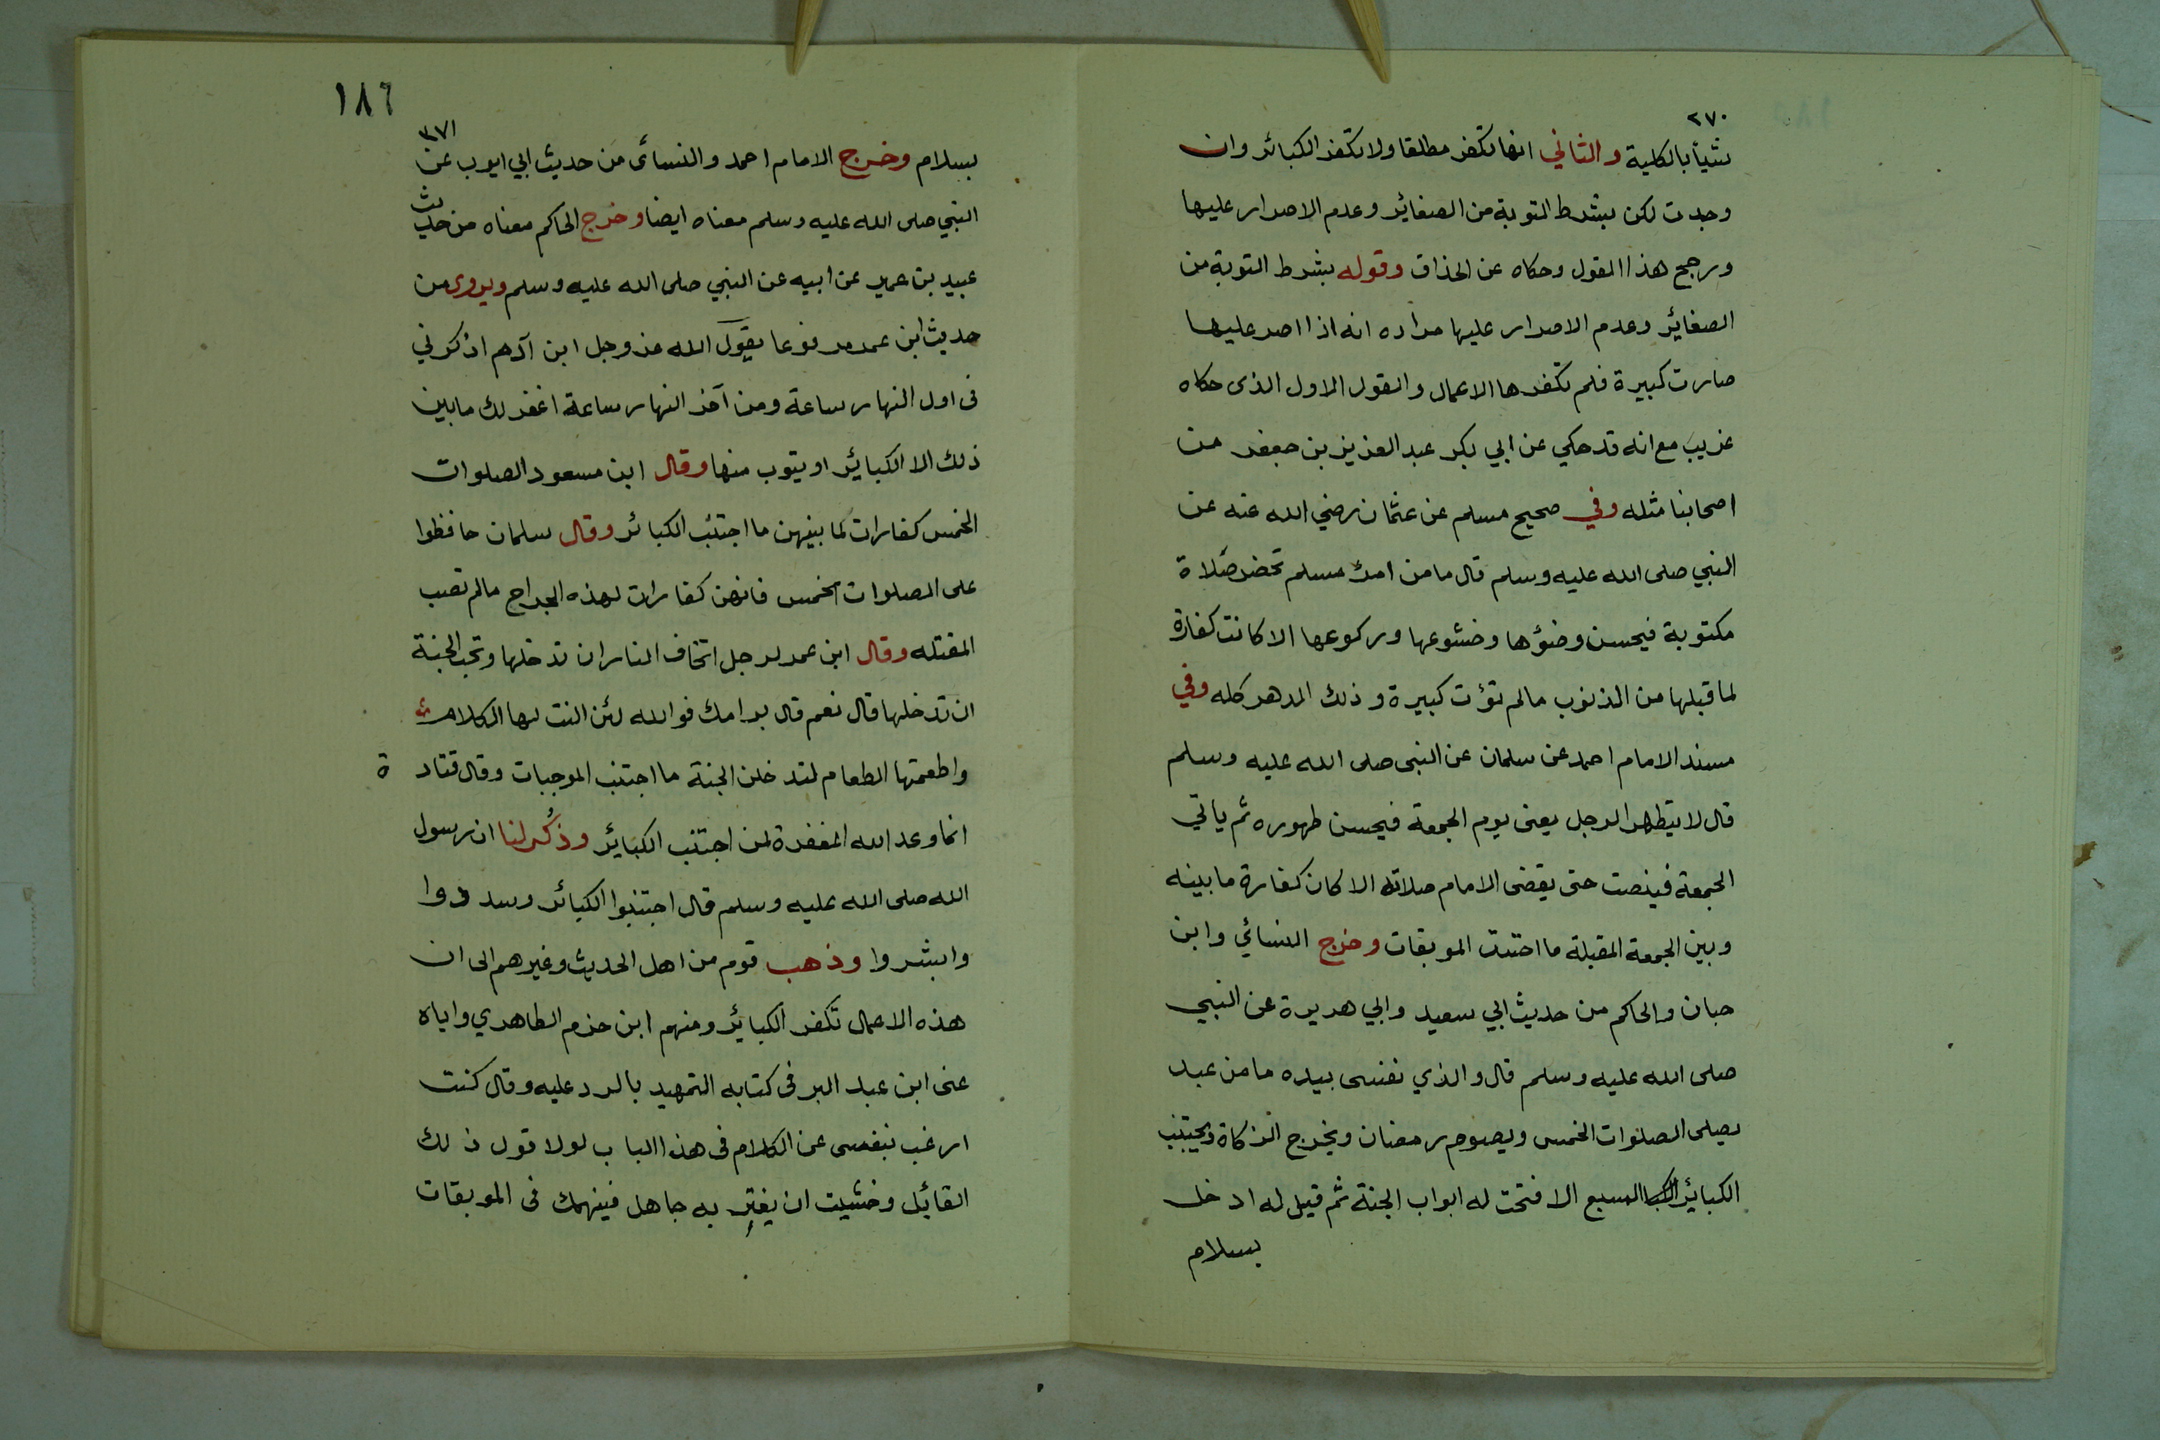 ٢٧٠
شيأ بالكلية والثاني انها تكفر مطلقا ولا تكفر الكبائر وان
وجدت لكن بشرط التوبة من الصغائر وعدم الاصرار عليها
ورجح هذا القول وحكاه عن الحذاق وقوله بشرط التوبة من
الصغائر وعدم الاصرار عليها مراده انه اذا اصر عليها
صارت كبيرة فلم تكفرها الاعمال والقول الاول الذى حكاه
غريب مع انه قد حكي عن ابي بكر عبد العزيز بن جعفر من
اصحابنا مثله وفي صحيح مسلم عن عثمان رضي الله عنه عن
النبي صلى الله عليه وسلم قال ما من امرئ مسلم تحضر صلاة
مكتوبة فيحسن وضؤها وخشوعها وركوعها الا كانت كفارة
لما قبلها من الذنوب مالم تؤت كبيرة وذلك الدهر كله وفي
مسند الامام احمد عن سلمان عن النبى صلى الله عليه وسلم
قال لا يتطهر الرجل يعنى يوم الجمعة فيحسن طهوره ثم ياتي
الجمعة فينصت حتى يقضى الامام صلاته الا كان كفارة ما بينه
وبين الجمعة المقبلة ما اجتنبت الموبقات وخرج النسائي وابن
حبان والحاكم من حديث ابي سعيد وابي هريرة عن النبي
صلى الله عليه وسلم قال والذي نفسى بيده ما من عبد
يصلى الصلوات الخمس ويصوم رمضان ويخرج الزكاة ويجتنب
الكبائر السبع الا فتحت له ابواب الجنة ثم قيل له ادخل
بسلام
١٨٦
٣٧١
بسلام وخرج الامام احمد والنسائى من حديث ابي ايوب عن
النبي صلى الله عليه وسلم معناه ايضا وخرج الحاكم معناه من حديث
عبيد بن عمير عن ابيه عن النبي صلى الله عليه وسلم ويروى من
حديث ابن عمر مرفوعا يقول الله عز وجل ابن آدم اذكرني
فى اول النهار ساعة ومن آخر النهار ساعة اغفر لك ما بين
ذلك الا الكبائر او يتوب منها وقال ابن مسعود الصلوات
الخمس كفارات لما بينهن ما اجتنب الكبائر وقال سلمان حافظوا
على الصلوات الخمس فانهن كفارات لهذه الجراح مالم تصب
المقتله وقال ابن عمر لرجل اتخاف النار ان تدخلها وتحب الجنة
ان تدخلها قال نعم قال بر امك فوالله لئن النت لها الكلام
واطعمتها الطعام لتدخلن الجنة ما اجتنب الموجبات وقال قتادة
انما وعد الله المغفرة لمن اجتنب الكبائر وذُكر لنا ان رسول
الله صلى الله عليه وسلم قال اجتنبوا الكبائر وسددوا
وابشروا وذهب قوم من اهل الحديث وغيرهم الى ان
هذه الاعمال تكفر الكبائر ومنهم ابن حزم الظاهري واياه
عنى ابن عبد البر فى كتابه التمهيد بالرد عليه وقال كنت
ارغب بنفسى عن الكلام فى هذا الباب لولا قول ذلك
القائل وخشيت ان يغتر به جاهل فينهمك فى الموبقات